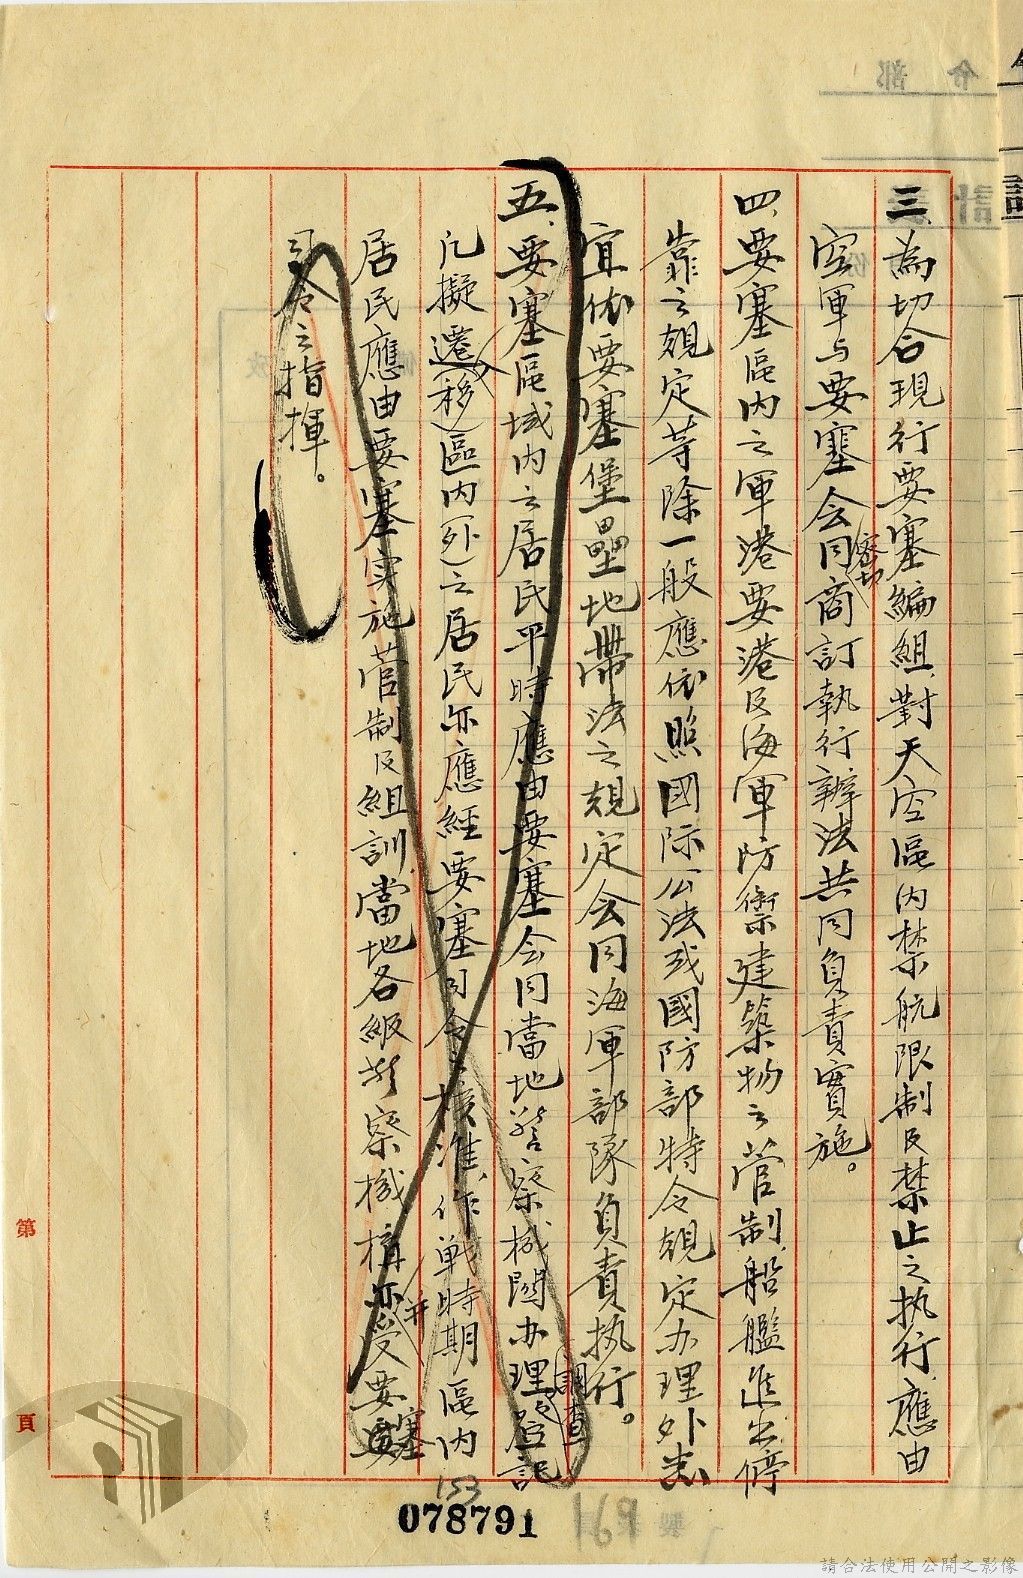 三、為切合現行要塞編組、對天空區內禁航限制及禁止之执行、應由
空軍与要塞会同密切商訂執行辦法共同負責實施。
四、要塞區內之軍港要港及海軍防禦建築物之管制、船艦進出停
靠之規定等除一般應依照國际公法或國防部特令規定办理外尚
宜依要塞堡壘地帶法之規定会同海軍部隊負責执行。
五、要塞區域內之居民平時應由要塞会同當地警察機関办理調查登記
凡擬遷移區內外之居民亦應經要塞司令之核准、作戰時期區內
居民應由要塞实施管制及組訓、當地各級警察機構亦并受要塞
司令之指揮。
第
頁
153
078791
請合法使用公開之影像